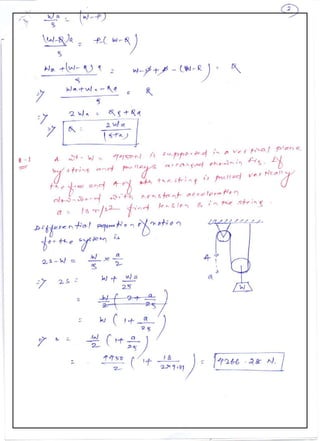 2
Wa/g = (W-P)
(W-Q)a/g = P-(W-Q)
Wa+(W-Q)a/g = W-P+P-(W-R) = Q
=> Wa+Wa-Qa/g = Q
=> 2Wa = Qg+Qa
=> Q = 2Wa/(g+a)
A wt. W = 4450N is supported in a vertical plane
by string and pulleys arranged shown in fig. If
the free end A of the string is pulled vertically
downward with constant acceleration
a = 18 m/s² find tension S in the string.
Differential equation of motion
for the system is
2S-W = W/g × a/2
=> 2S = W + Wa/2g
= W/2 (2+a/g)
= W (1+a/2g)
=> S = W/2 (1+a/2g)
= 4450/2 (1+18/2×9.81) = 4266.28 N.
A
a
W